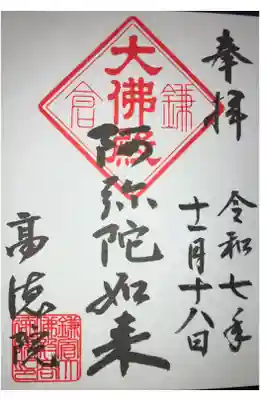 奉拝
令和七年
十一月十八日
大佛殿
鎌倉
阿弥陀如来
高徳院